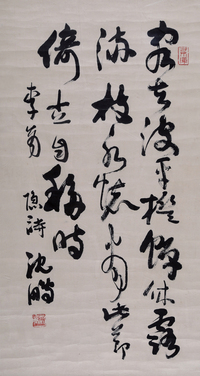 客去波平檻蟬休露
滿枝永懷當此節
倚立自移時
李商隱詩 沈鵬